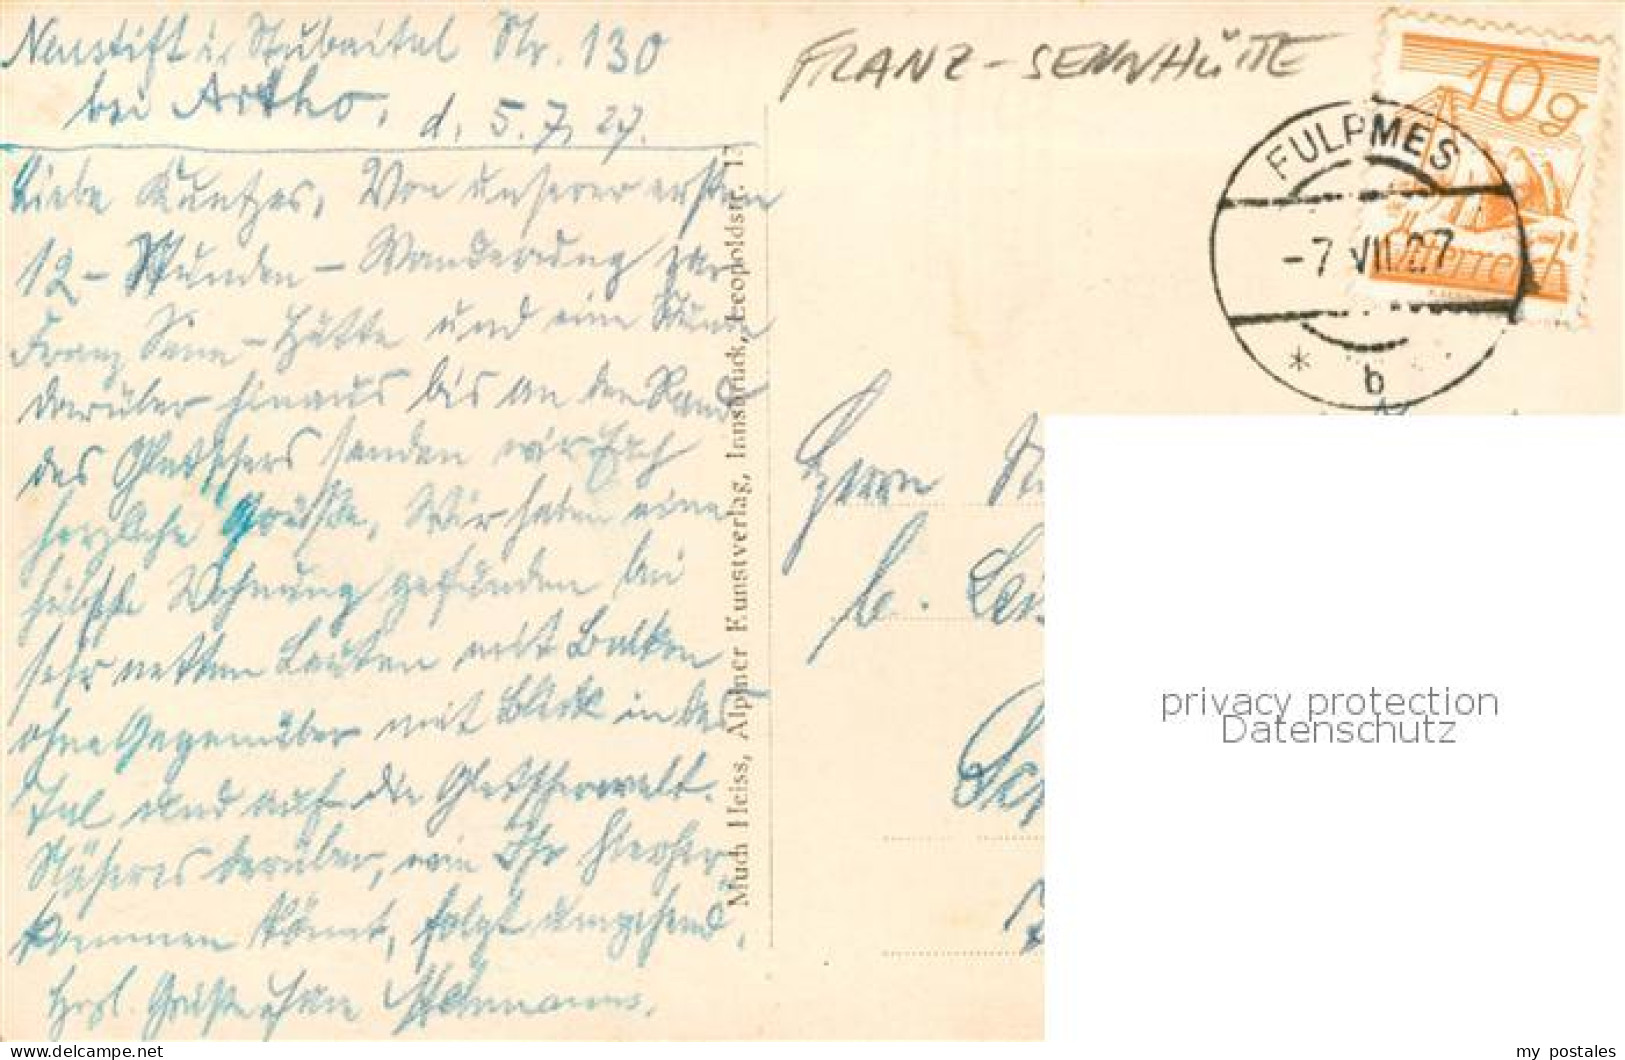 Neustift i. Stubaital Nr. 130
bei Artho, d. 5.7.27.
Liebe Kuntzes, Von unserer ersten
12-Stunden-Wanderung zur
Franz Senn-Hütte und eine Stunde
darüber hinaus bis an den Rand
des Gletschers senden wir Euch
herzliche Grüße. Wir haben eine
hübsche Wohnung gefunden bei
sehr netten Leuten mit Balkon
ohne Gegenüber mit Blick in das
Tal und auf die Gletscherwelt.
Näheres darüber, wie Ihr hierher
kommen könnt, folgt umgehend.
Herzl. Grüße
Much Heiss, Alpiner Kunstverlag, Innsbruck, Leopoldstr.
FRANZ-SENNHÜTTE
10g
Österreich
FULPMES
-7.VII.27
* b
Herrn
b. Lei
privacy protection
Datenschutz
www.delcampe.net
my_postales